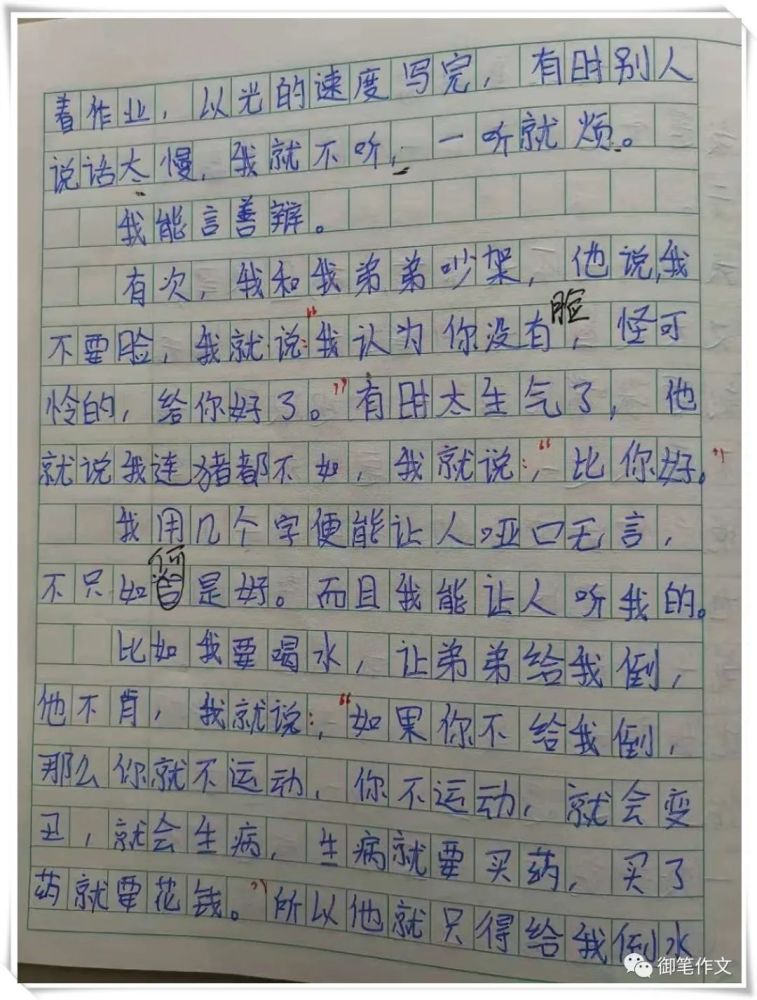 着作业，以光的速度写完，有时别人
说话太慢，我就不听，一听就烦。
我能言善辨。
有次，我和我弟弟吵架，他说，我
不要脸，我就说：“我认为你没有脸，怪可
怜的，给你好了。”有时太生气了，他
就说我连猪都不如，我就说：，“比你好。”
我用几个字便能让人哑口无言，
不只如何是好。而且我能让人听我的。
比如我要喝水，让弟弟给我倒，
他不肯，我就说：，“如果你不给我倒，
那么你就不运动，你不运动，就会变
丑，就会生病，生病就要买药，买了
药就要花钱。”所以他就只得给我倒水
御笔作文